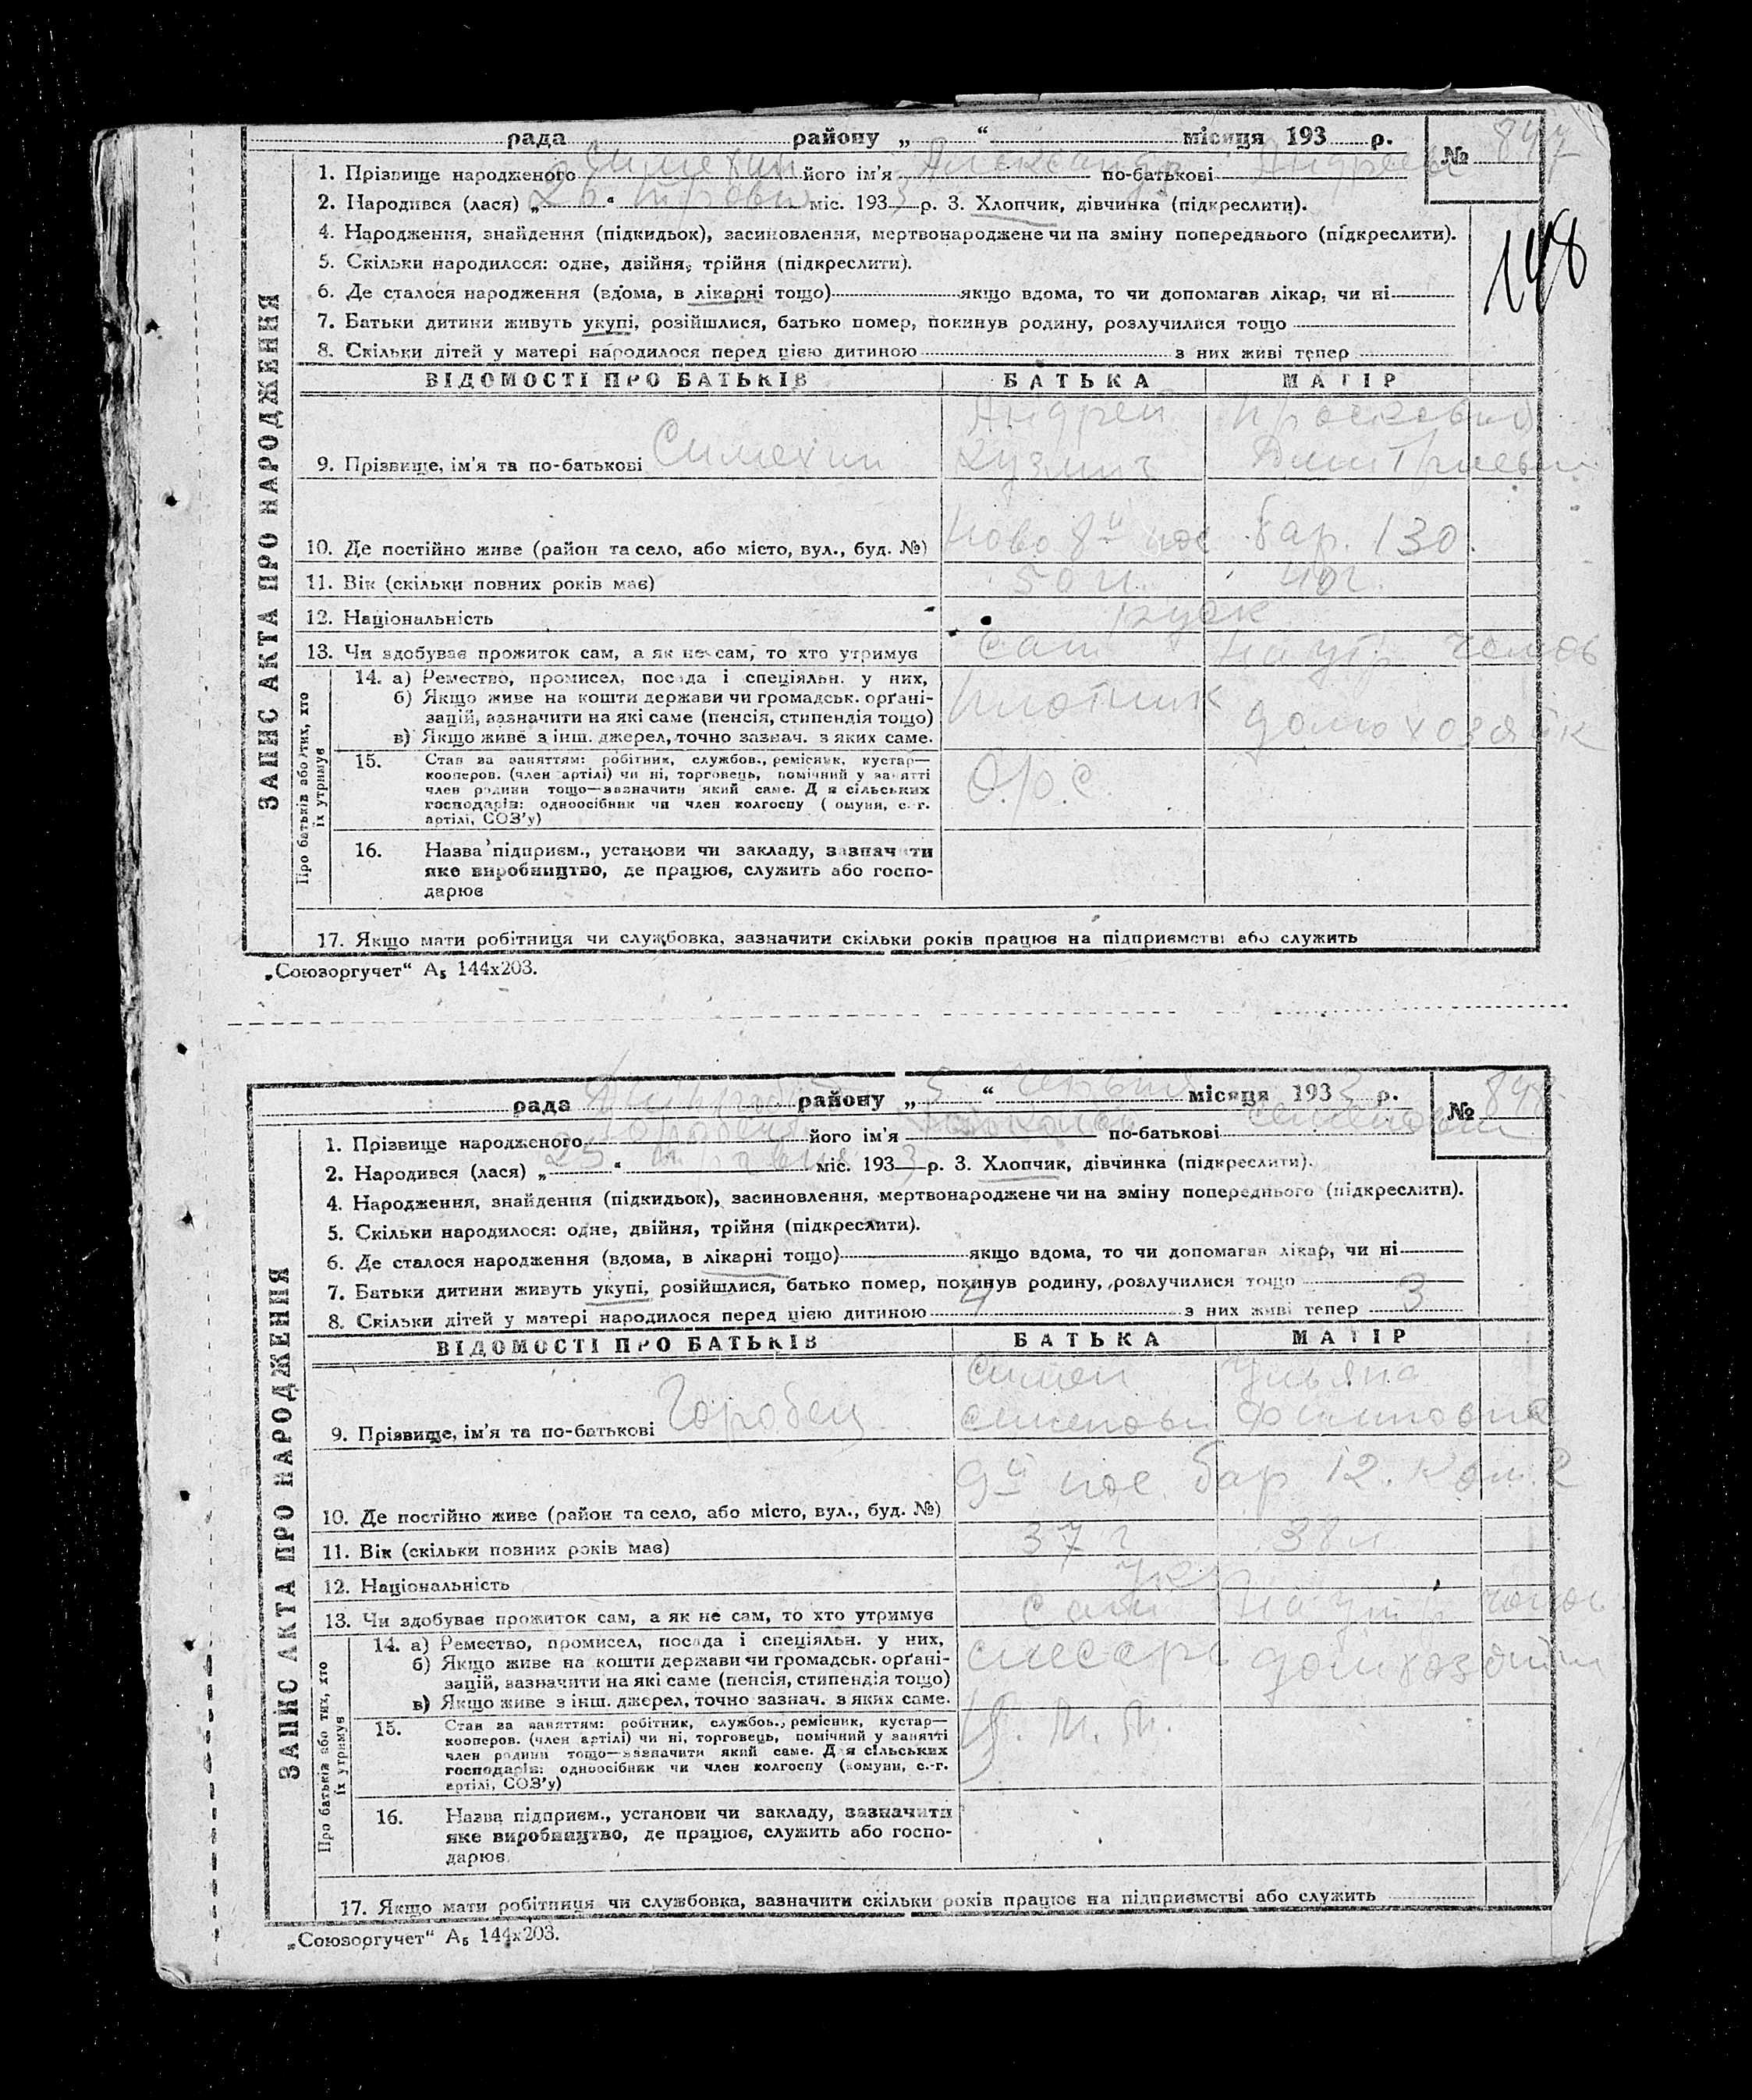 рада районУ „ “ місяця 193 р. № 847
1. Прізвище народженого Симехин його ім'я Александр по-батькові Андреев
2. Народився (лася) „26“ травня міс. 1933 р. 3. Хлопчик, дівчинка (підкреслити).
148
4. Народження, знайдення (підкидьок), засиновлення, мертвонароджене чи на зміну попереднього (підкреслити).
5. Скільки народилося: одне, двійня, трійня (підкреслити).
6. Де сталося народження (вдома, в лікарні тощо) якщо вдома, то чи допомагав лікар, чи ні
7. Батьки дитини живуть укупі, розійшлися, батько помер, покинув родину, розлучилися тощо
8. Скільки дітей у матері народилося перед цією дитиною з них живі тепер
ЗАПИС АКТА ПРО НАРОДЖЕННЯ
ВІДОМОСТІ ПРО БАТЬКІВ БАТЬКА МАТІР
Андрей Прасковия
9. Прізвище, ім'я та по-батькові Симехин Кузмич Дмитриевн
10. Де постійно живе (район та село, або місто, вул., буд. №) Ново 8й пос бар. 130.
11. Вік (скільки повних років має) 50 л. 40 г.
12. Національність руск
13. Чи здобуває прожиток сам, а як не сам, то хто утримує сам на утр.
Про батьків або тих, хто їх утримує
14. а) Ремество, промисел, посада і спеціяльн. у них,
б) Якщо живе на кошти держави чи громадськ. орґані-
зацій, зазначити на які саме (пенсія, стипендія тощо)
в) Якщо живе з інш. джерел, точно зазнач. з яких саме.
плотник домохозяйк
15. Стан за заняттям: робітник, службов., ремісник, кустар—
кооперов. (член артілі) чи ні, торговець, помічний у занятті
член родини тощо—зазначити який саме. Для сільських
господарів: одноосібник чи член колгоспу (комуни, с.-г.
артілі, СОЗ'у)
О.р.с.
16. Назва підприєм., установи чи закладу, зазначити
яке виробництво, де працює, служить або госпо-
дарює
17. Якщо мати робітниця чи службовка, зазначити скільки років працює на підприємстві або служить
„Союзоргучет“ А₅ 144х203.
рада району „5“ червня місяця 1933 р. № 848
1. Прізвище народженого Горобец його ім'я по-батькові Семенович
2. Народився (лася) „25“ травня міс. 1933 р. 3. Хлопчик, дівчинка (підкреслити).
4. Народження, знайдення (підкидьок), засиновлення, мертвонароджене чи на зміну попереднього (підкреслити).
5. Скільки народилося: одне, двійня, трійня (підкреслити).
6. Де сталося народження (вдома, в лікарні тощо) якщо вдома, то чи допомагав лікар, чи ні
7. Батьки дитини живуть укупі, розійшлися, батько помер, покинув родину, розлучилися тощо
8. Скільки дітей у матері народилося перед цією дитиною 4 з них живі тепер 3
ЗАПИС АКТА ПРО НАРОДЖЕННЯ
ВІДОМОСТІ ПРО БАТЬКІВ БАТЬКА МАТІР
Симен Ульяна
9. Прізвище, ім'я та по-батькові Горобец Семенови Филиповна
10. Де постійно живе (район та село, або місто, вул., буд. №) 9й пос. бар 12. ком. 2
11. Вік (скільки повних років має) 37 г 38 л
12. Національність укр
13. Чи здобуває прожиток сам, а як не сам, то хто утримує сам на утр
Про батьків або тих, хто їх утримує
14. а) Ремество, промисел, посада і спеціяльн. у них,
б) Якщо живе на кошти держави чи громадськ. орґані-
зацій, зазначити на які саме (пенсія, стипендія тощо)
в) Якщо живе з інш. джерел, точно зазнач. з яких саме.
слесарь домхозяйк
15. Стан за заняттям: робітник, службов., ремісник, кустар—
кооперов. (член артілі) чи ні, торговець, помічний у занятті
член родини тощо—зазначити який саме. Для сільських
господарів: одноосібник чи член колгоспу (комуни, с.-г.
артілі, СОЗ'у)
16. Назва підприєм., установи чи закладу, зазначити
яке виробництво, де працює, служить або госпо-
дарює
17. Якщо мати робітниця чи службовка, зазначити скільки років працює на підприємстві або служить
„Союзоргучет“ А₅ 144х203.